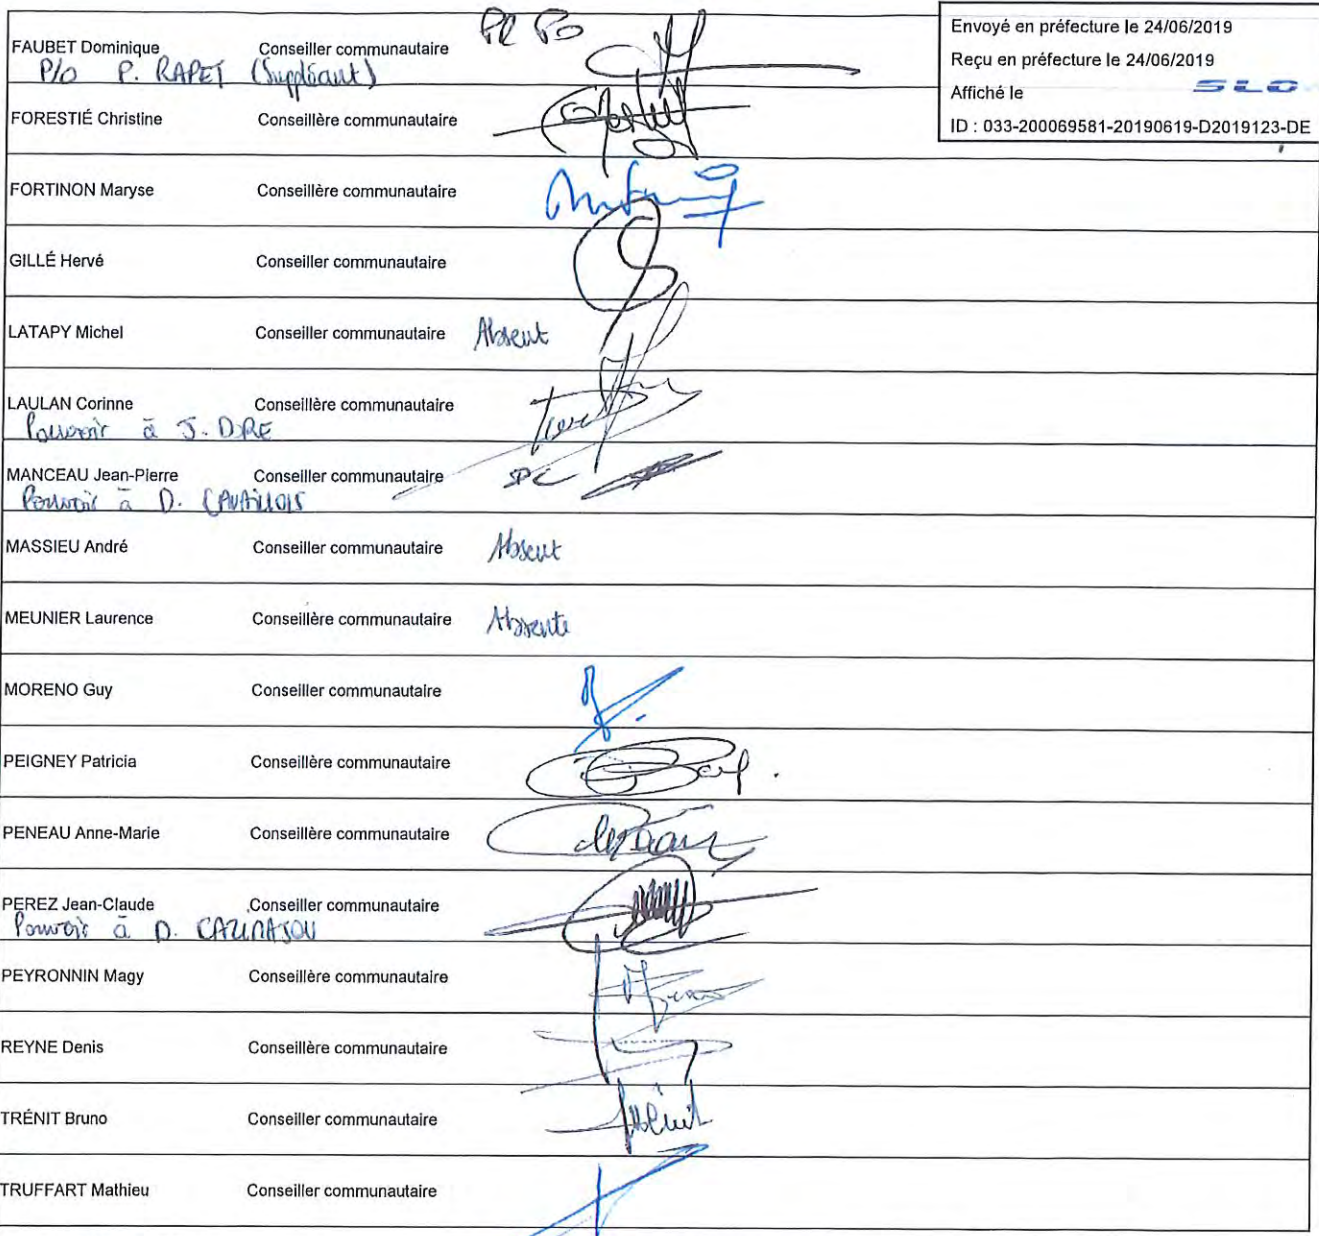 Envoyé en préfecture le 24/06/2019
Reçu en préfecture le 24/06/2019
Affiché le SLO
ID : 033-200069581-20190619-D2019123-DE
FAUBET Dominique Conseiller communautaire
P/O P. RAPET (Suppléant)
FORESTIÉ Christine Conseillère communautaire
FORTINON Maryse Conseillère communautaire
GILLÉ Hervé Conseiller communautaire
LATAPY Michel Conseiller communautaire Absent
LAULAN Corinne Conseillère communautaire
Pouvoir à J. DORE
MANCEAU Jean-Pierre Conseiller communautaire
Pouvoir à D.
MASSIEU André Conseiller communautaire Absent
MEUNIER Laurence Conseillère communautaire Absente
MORENO Guy Conseiller communautaire
PEIGNEY Patricia Conseillère communautaire
PENEAU Anne-Marie Conseillère communautaire
PEREZ Jean-Claude Conseiller communautaire
Pouvoir à D.
PEYRONNIN Magy Conseillère communautaire
REYNE Denis Conseillère communautaire
TRÉNIT Bruno Conseiller communautaire
TRUFFART Mathieu Conseiller communautaire